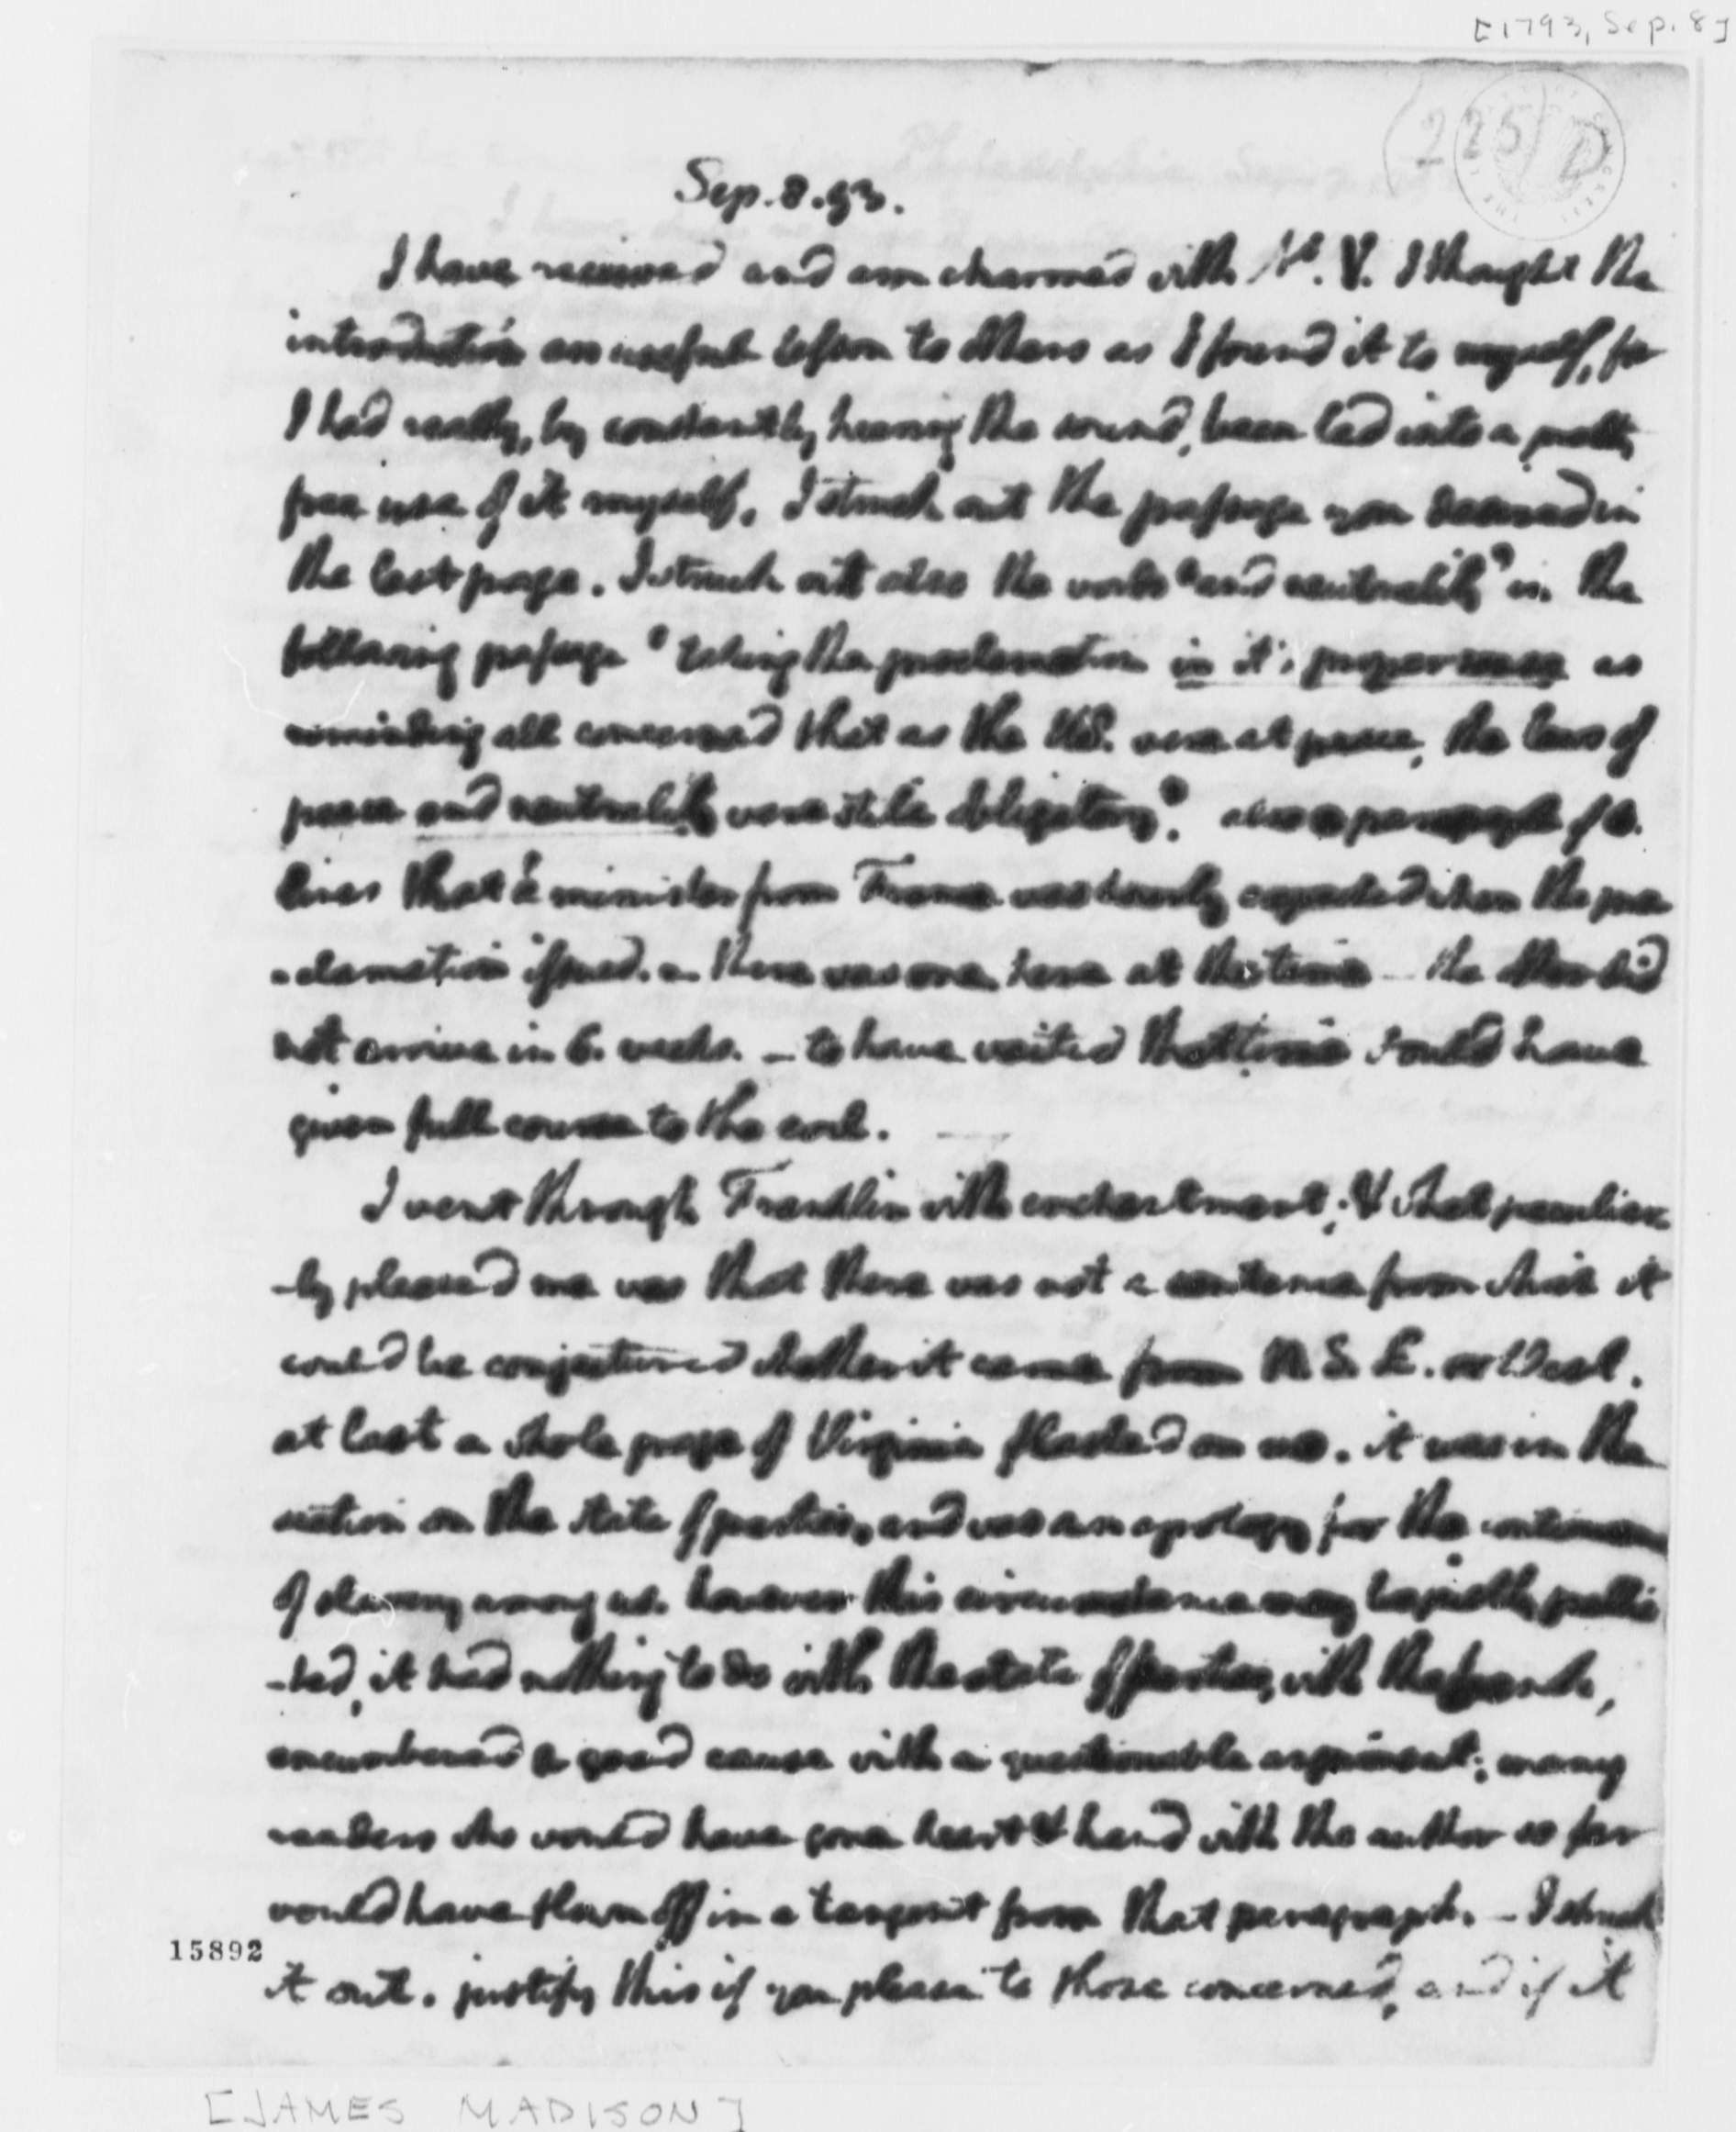 [1793, Sep. 8]
(225)
Sep. 8. 93.
I have received and am charmed with No. V. I thought the
introduction an useful lesson to others as I found it to myself, for
I had really, by constantly hearing the sound, been led into a pretty
free use of it myself. I struck out the passage you desired in
the last page. I struck out also the words "and neutrality" in the
following passage "taking the proclamation in it's proper sense as
reminding all concerned that as the US. were at peace, the laws of
peace and neutrality were still obligatory". also a paragraph of 4.
lines that 'a minister from France was hourly expected when the pro
-clamation issued.' there was one here at the time - the other did
not arrive in 6. weeks. - to have waited that time would have
given full course to the evil.
I went through Franklin with enchantment; & what peculiar
-ly pleased me was that there was not a sentence from which it
could be conjectured whether it came from N. S. E. or West.
at last a whole page of Virginia flashed on me. it was in the
section on the state of parties, and was an apology for the continuance
of slavery among us. however this circumstance may be justly pallia
-ted, it had nothing to do with the state of parties, with the bank,
encumbered a good cause with a questionable argument; many
readers who would have gone heart & hand with the author so far
would have flown off in a tangent from that paragraph. - I struck
it out. justify this if you please to those concerned, and if it
15892
[JAMES MADISON]